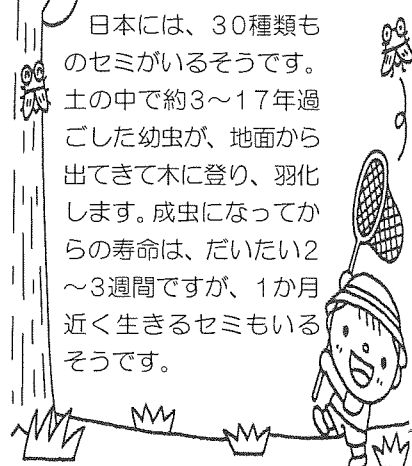 日本には、30種類も
のセミがいるそうです。
土の中で約3～17年過
ごした幼虫が、地面から
出てきて木に登り、羽化
します。成虫になってか
らの寿命は、だいたい2
～3週間ですが、1か月
近く生きるセミもいる
そうです。